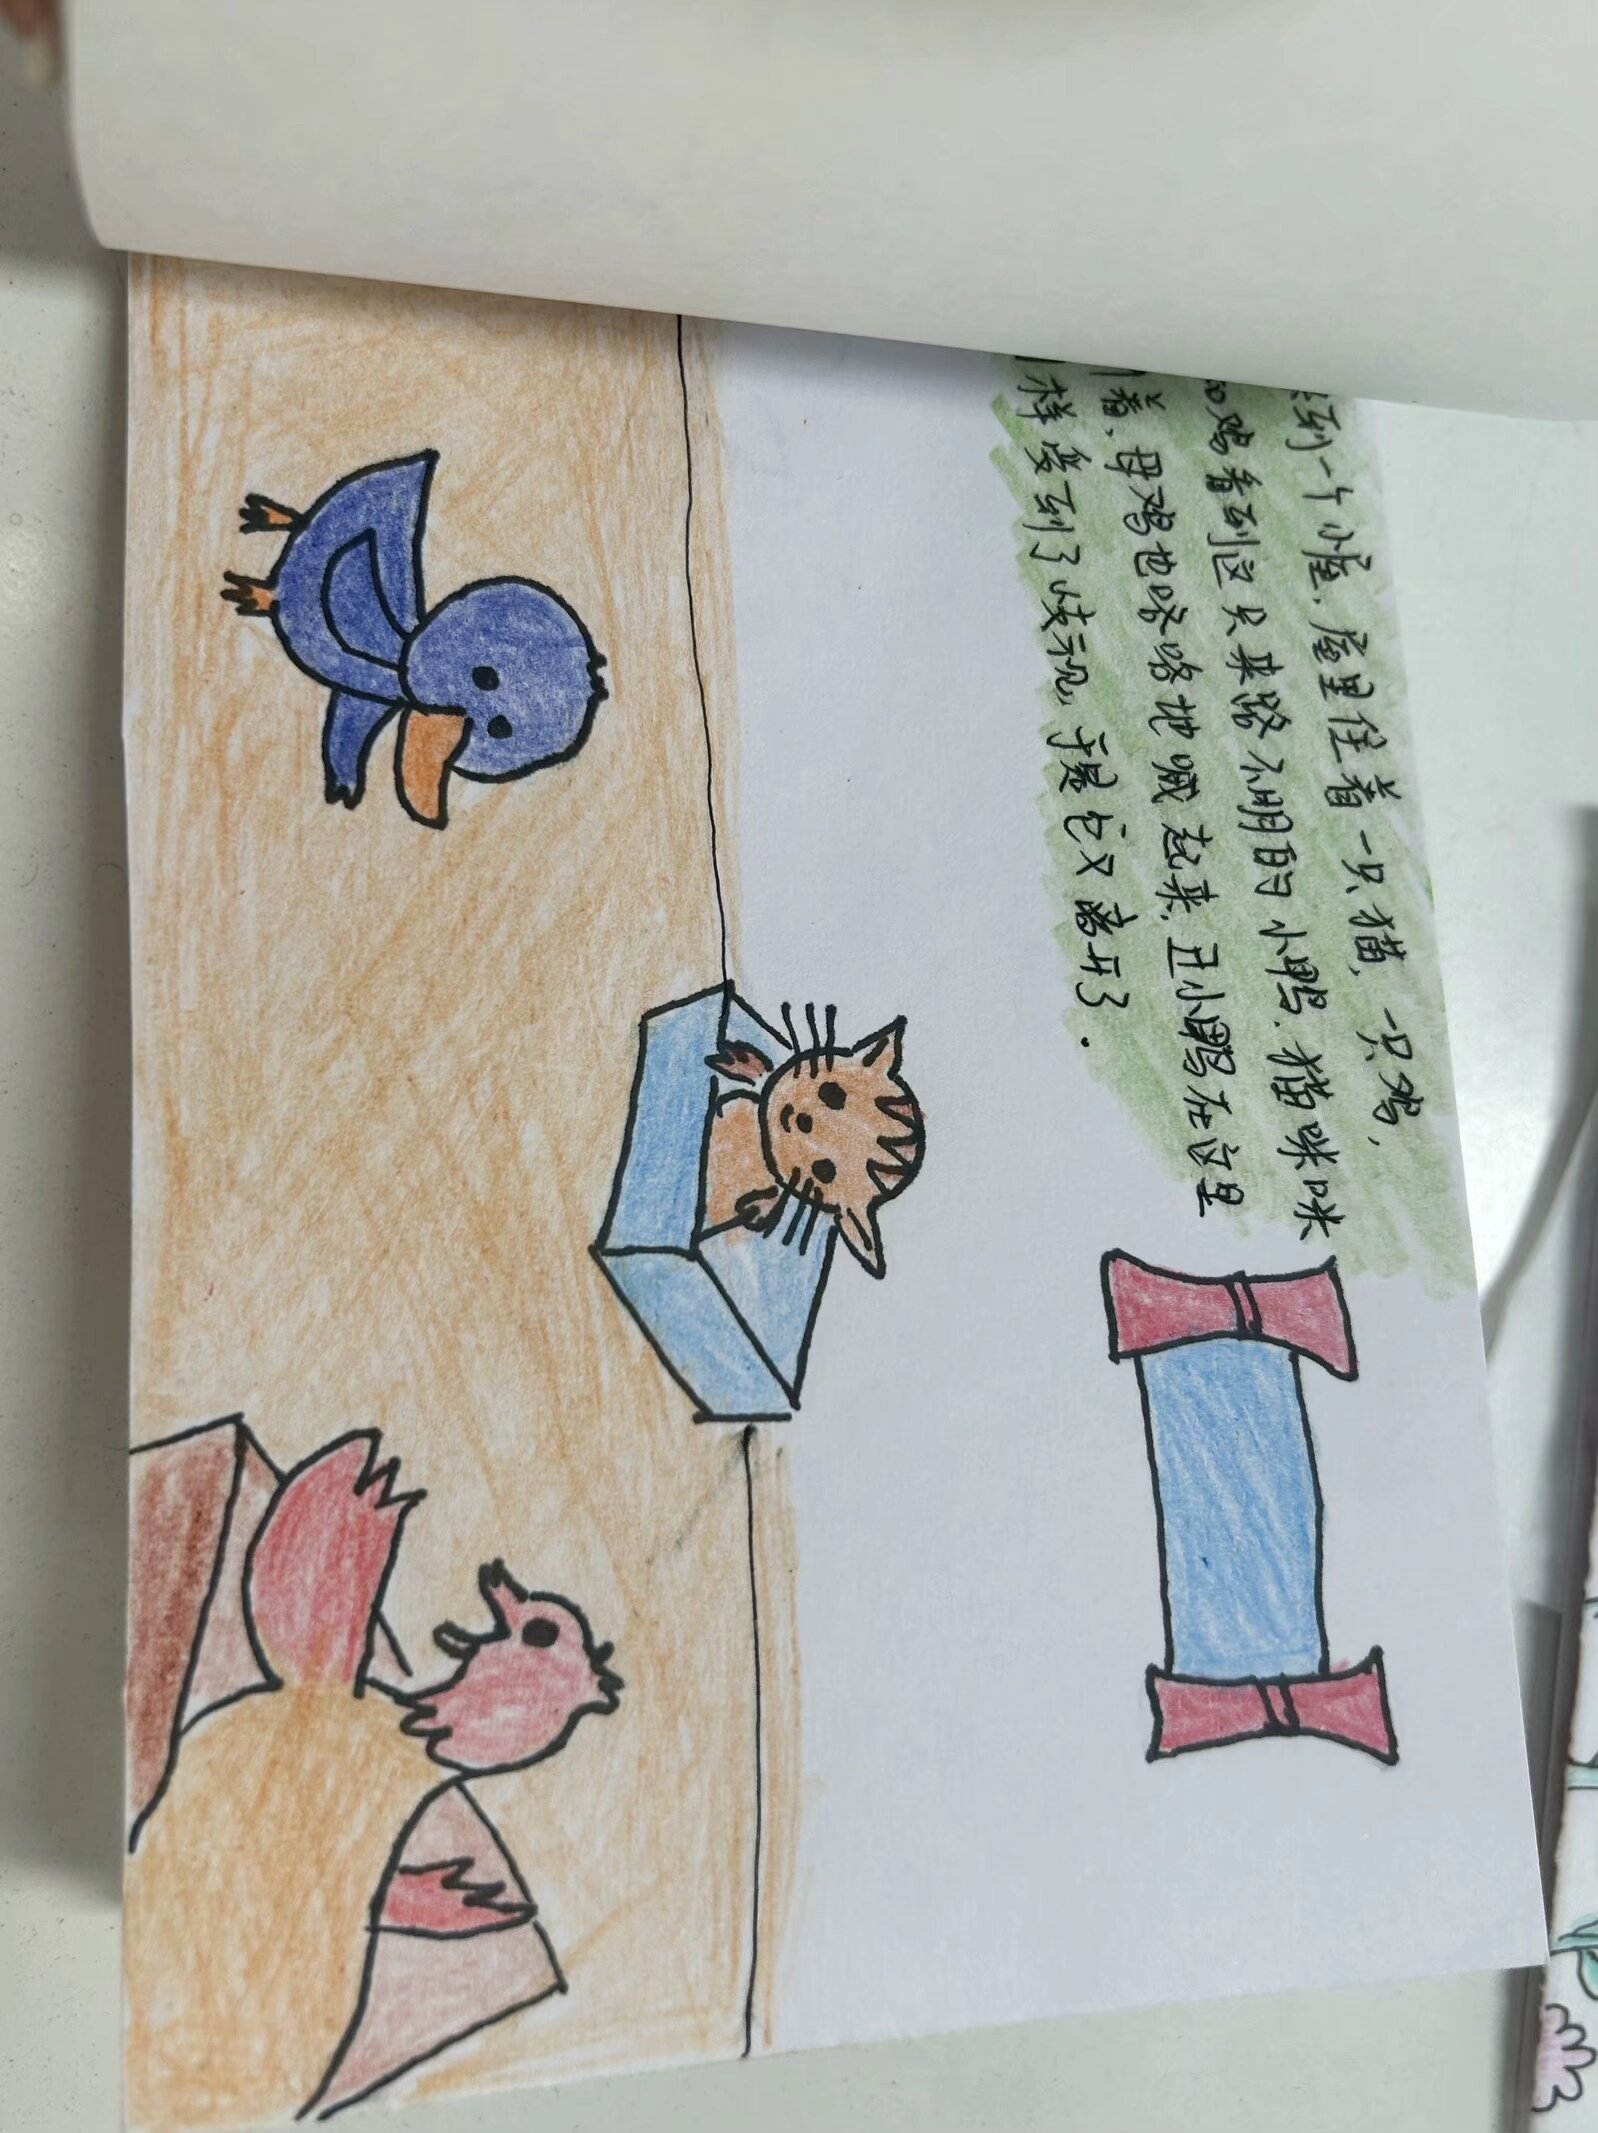 到一个小屋，屋里住着一只猫，一只鸡，
和鸡看到这只来路不明的小鸭，猫咪咪
着，母鸡也咯咯地喊起来，丑小鸭在这里
样受到了歧视，于是它又离开了．